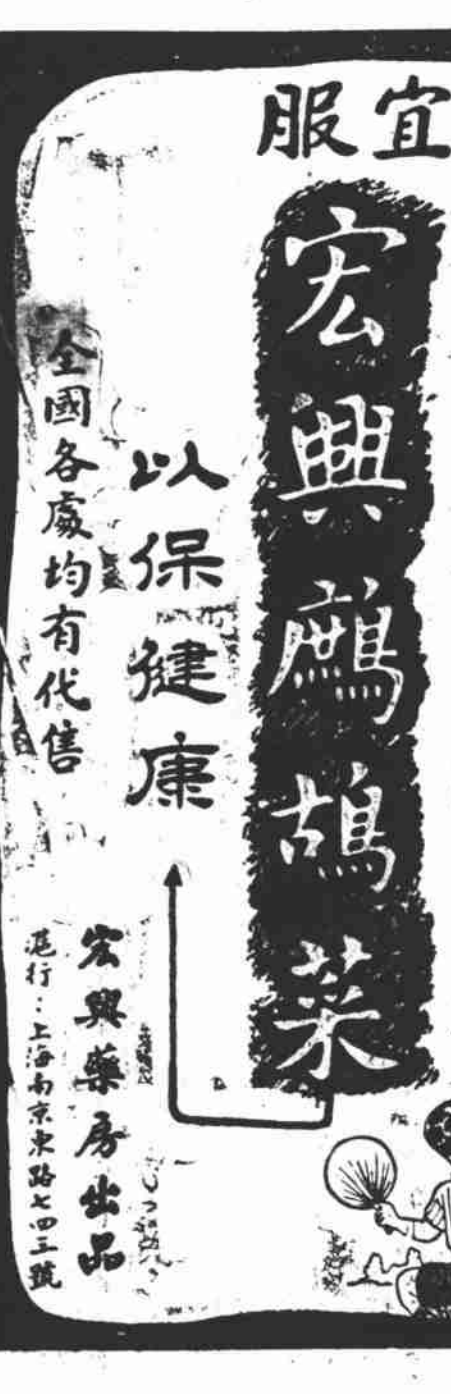 宜服
宏興鷓鴣菜
以保健康
全國各處均有代售
宏興藥房出品
滬行：上海南京東路七四三號